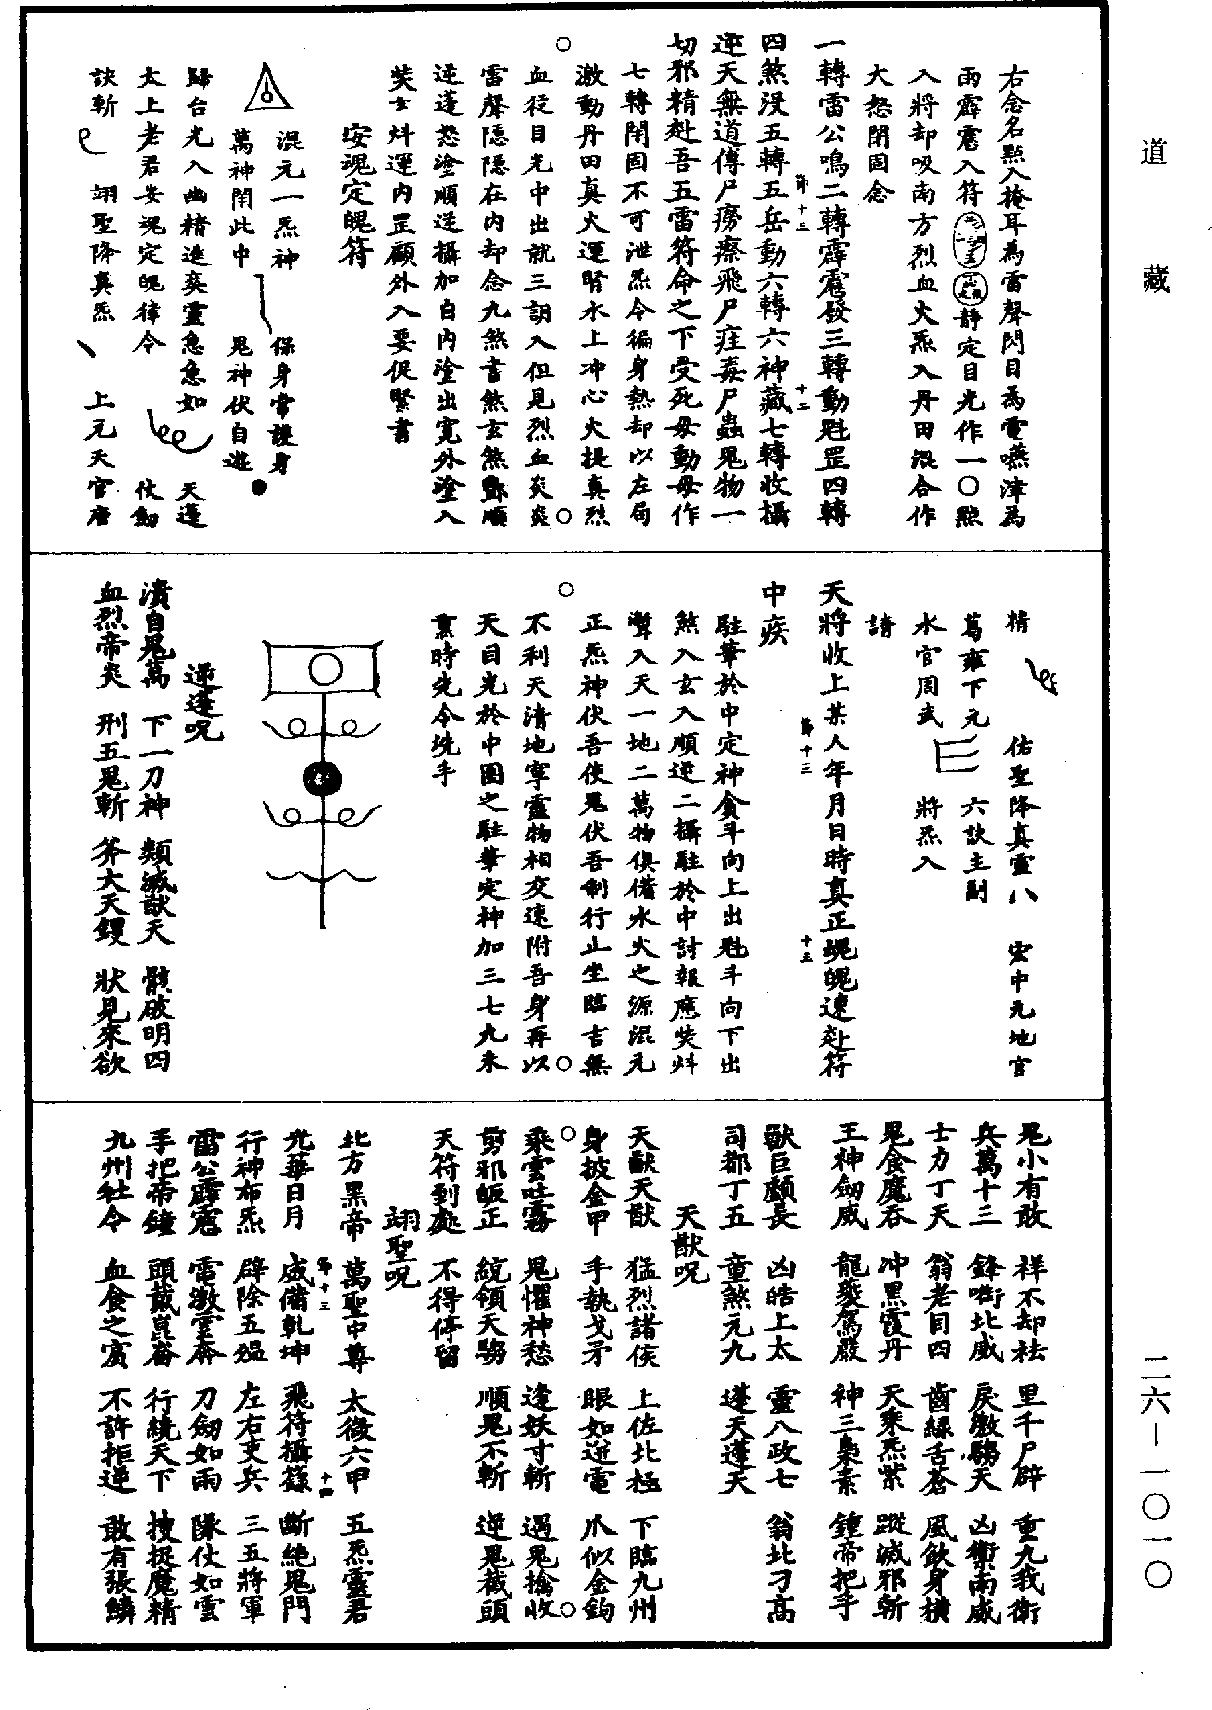 道藏
右念名點入掩耳為雷聲閃目為電嚥津為
雨霹靂入符靜定目光作一〇點
入將却吸南方烈血火炁入丹田混合作
大怒閉固念
一轉雷公鳴二轉霹靂發三轉動魁罡四轉
四煞沒五轉五岳動六轉六神藏七轉收攝
逆天無道傳尸癆瘵飛尸疰毒尸蟲鬼物一
切邪精赴吾五雷符命之下受死毋動毋作
七轉閉固不可泄炁令徧身熱却以左局
激動丹田真火運腎水上冲心火提真烈
血從目光中出就三詔入但見烈血炎炎
雷聲隱隱在內却念九煞書煞玄煞順
逆逢怒塗順逆攝加自內塗出寬外塗入
焚女炓運內罡顧外入要促緊書
安魂定魄符
混元一炁神
保身常護身
萬神閉此中
鬼神伏自遊
歸台光入幽精進爽靈急急如
天蓬
太上老君安魂定魄律令
仗劍
訣斬
翊聖降真炁
上元天官唐
精
佑聖降真靈八
宏中元地官
葛雍下元
六訣主副
水官周武
將炁入
請
天將收上某人年月日時真正魂魄速赴符
中疾
駐筆於中定神貪斗向上出魁斗向下出
煞入玄入順逆二攝駐於中討報應焚炓
灣入天一地二萬物俱備水火之源混元
正炁神伏吾使鬼伏吾制行止坐臨吉無
不利天清地寧靈物相交速附吾身再以
天目光於中圈之駐筆定神加三七九朱
熏時先令洗手
逆逢呪
潰自鬼萬 下一刀神 類滅猷天 骸破明四
血烈帝炎 刑五鬼斬 斧大天鑊 狀見來欲
鬼小有敢 祥不却袪 里千尸辟 重九我衛
兵萬十三 鋒㘅北威 戾激騶天 凶禦南威
士力丁天 翁老目四 齒綠舌蒼 風飲身横
鬼食魔吞 冲黑霞丹 天乘炁紫 蹤滅邪斬
王神劒威 龍夔駕嚴 神三梟素 鍾帝把手
獸巨顱長 凶皓上太 靈八政七 翁北刁高
司都丁五 童煞元九 蓬天蓬天
天猷呪
天猷天猷 猛烈諸侯 上佐北極 下臨九州
身披金甲 手執戈矛 眼如迸電 爪似金鉤
乘雲吐霧 鬼懼神愁 逢妖寸斬 遇鬼擒收
剪邪皈正 統領天騶 順鬼不斬 逆鬼截頭
天符到處 不得停留
翊聖呪
北方黑帝 萬聖中尊 太後六甲 五炁靈君
光華日月 威備乹坤 飛符攝籙 斷絶鬼門
行神布炁 辟除五瘟 左右吏兵 三五將軍
雷公霹靂 電激雲奔 刀劒如雨 隊仗如雲
手把帝鐘 頭戴崑崙 行繞天下 搜捉魔精
九州社令 血食之賓 不許拒逆 敢有張鱗
二六—一〇一〇